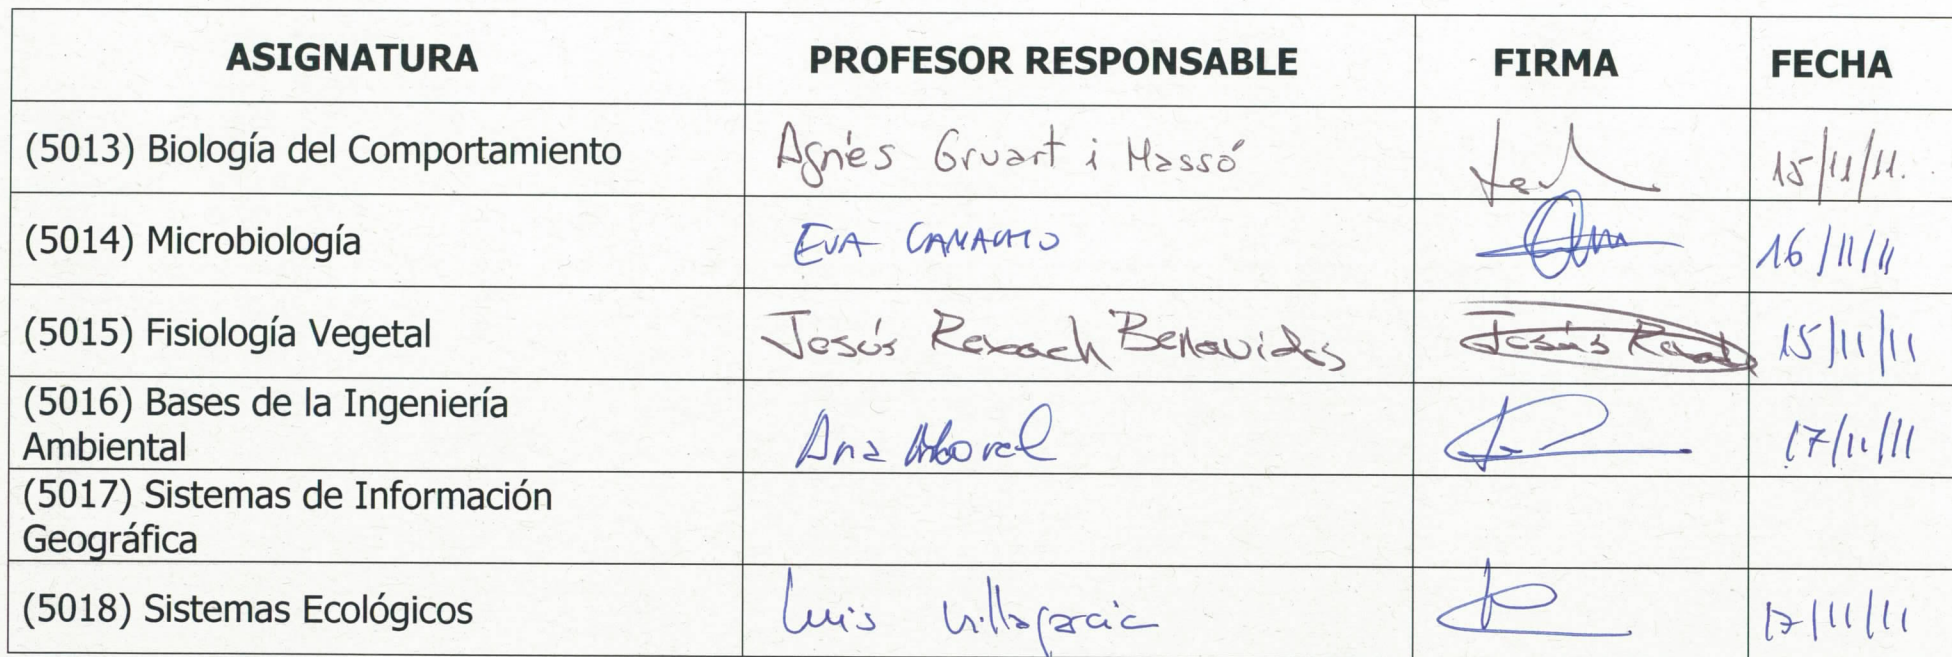 ASIGNATURA PROFESOR RESPONSABLE FIRMA FECHA
(5013) Biología del Comportamiento Agnès Gruart i Massó 15/11/11.
(5014) Microbiología EVA CAMACHO 16/11/11
(5015) Fisiología Vegetal Jesús Rexach Benavides Jesús 15/11/11
(5016) Bases de la Ingeniería
Ambiental Ana Moral 17/11/11
(5017) Sistemas de Información
Geográfica
(5018) Sistemas Ecológicos Luis Villagarcía 17/11/11